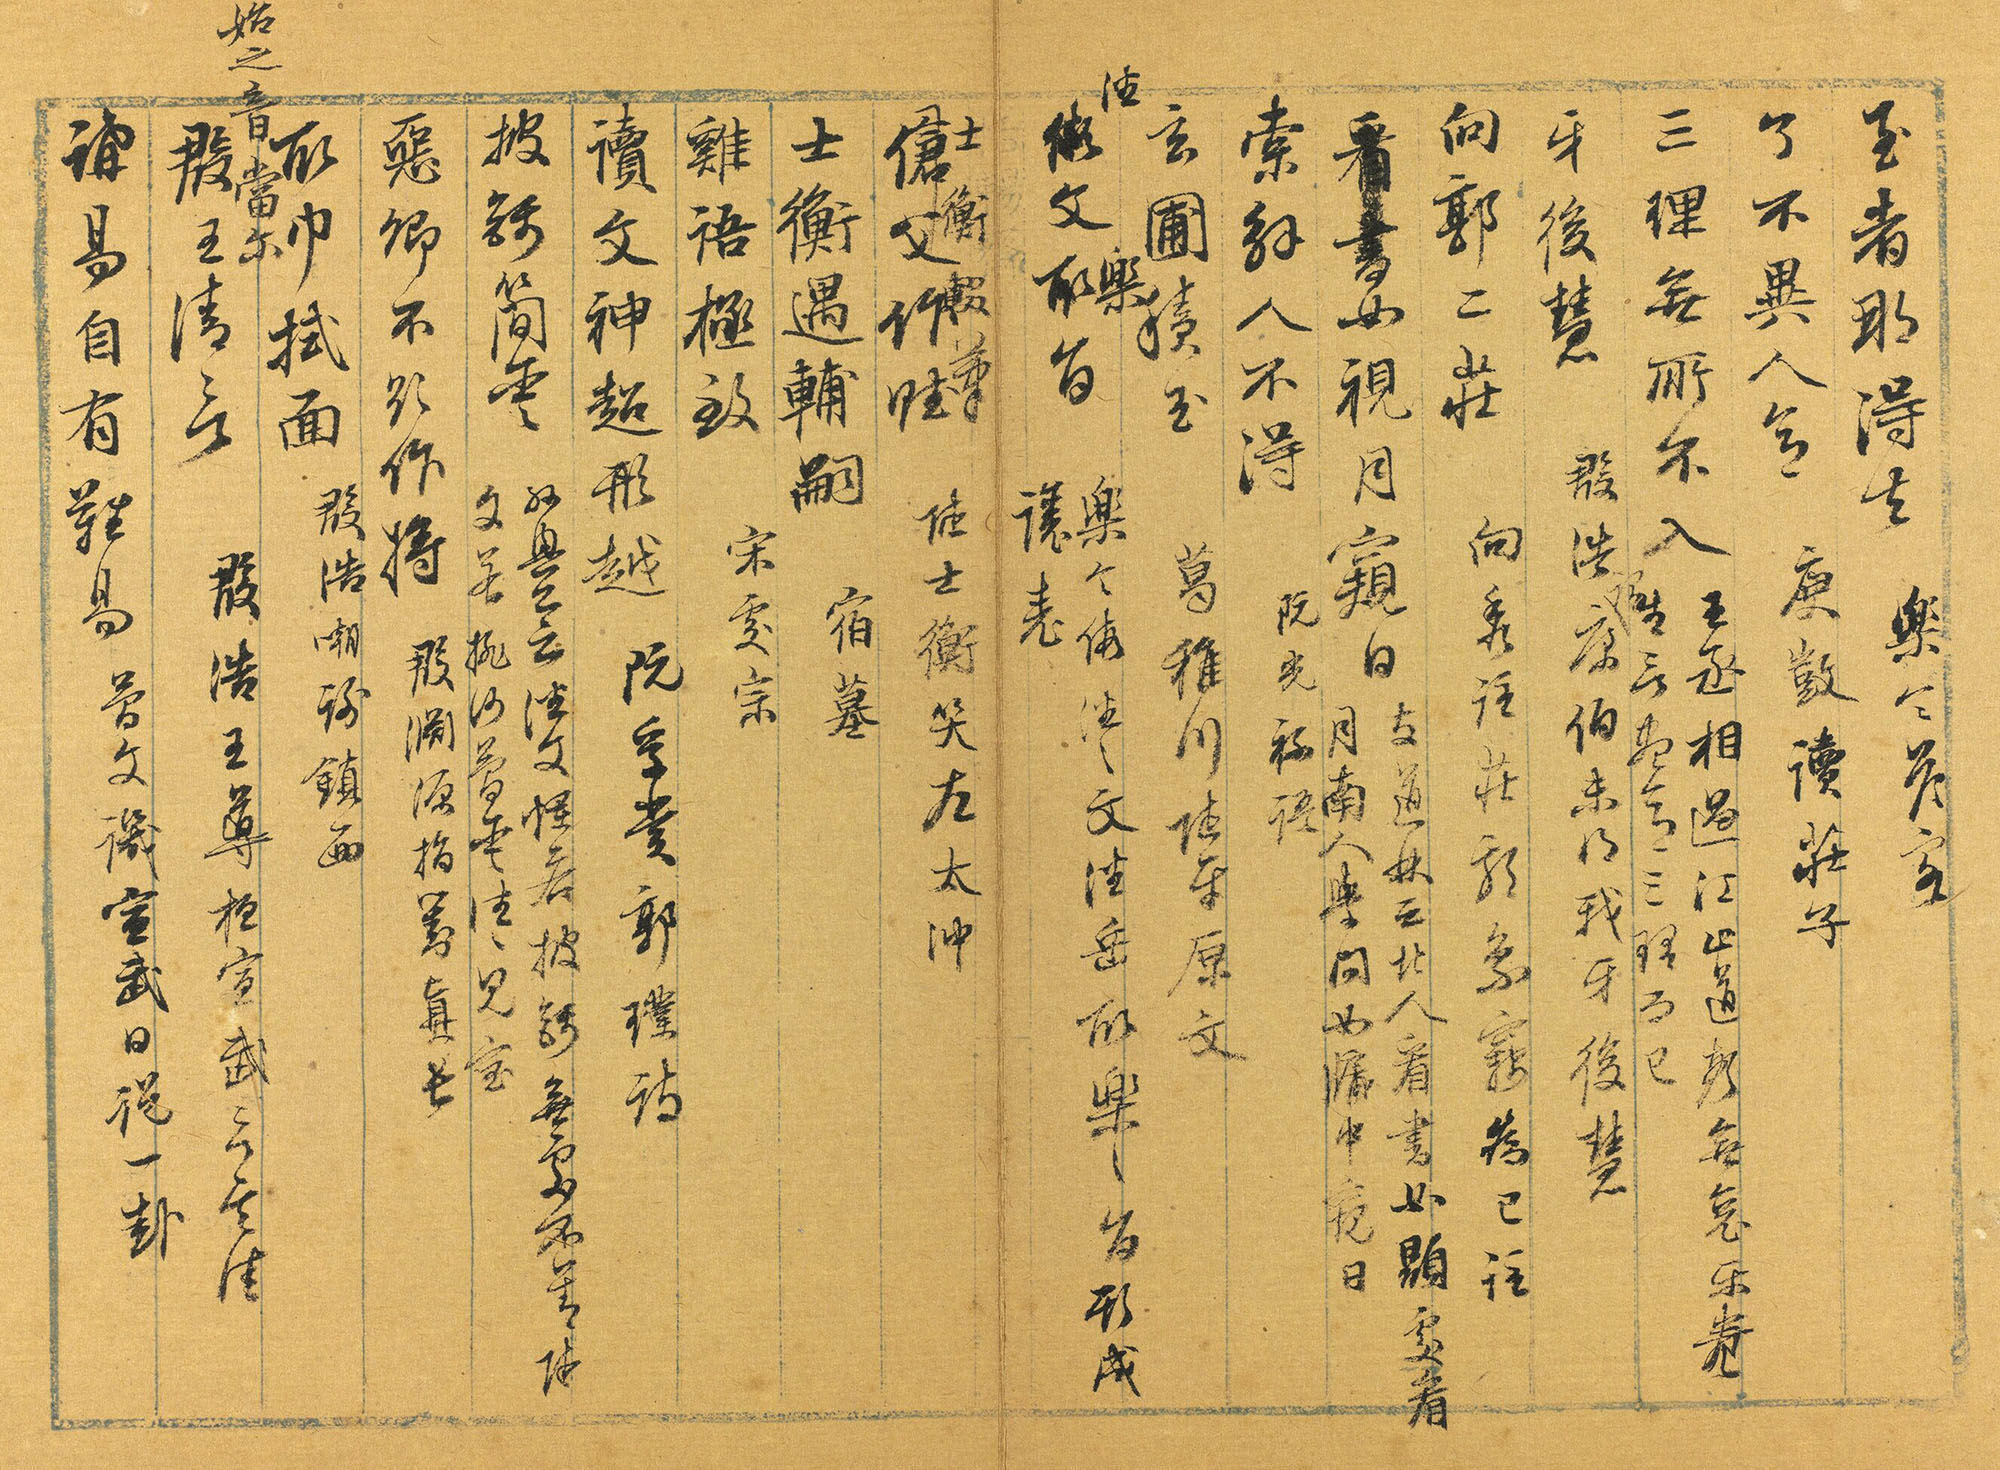 至者那得去 樂令答客
了不異人意 庾敳讀莊子
三理無所不入 王丞相過江止道聲無哀樂養
生言盡意三理而已
牙後慧 殷浩康伯未得我牙後慧
向郭二莊 向秀註莊郭象竊為己註
看書如視月窺日 支道林云北人看書如顯處看
月南人學問如牖中窺日
索解人不得 阮光祿語
玄圃積玉 葛稚川陸平原文
潘文樂旨 樂令倩潘文潘岳取樂旨形成
讓表
傖父作賦 陸士衡笑左太沖
士衡遇輔嗣 宿墓
雞語極致 宋處宗
讀文神超形越 阮孚賞郭璞詩
披錦簡金 孫興公云潘文爛若披錦無處不善陸
文若排沙簡金往往見寶
惡卿不欲作將 殷淵源指劉真長
取巾拭面 殷浩嘲謝鎮西
始之音當尔
殷王清言 殷浩王導桓宣武
講易自有難易 簡文譏宣武日說一卦